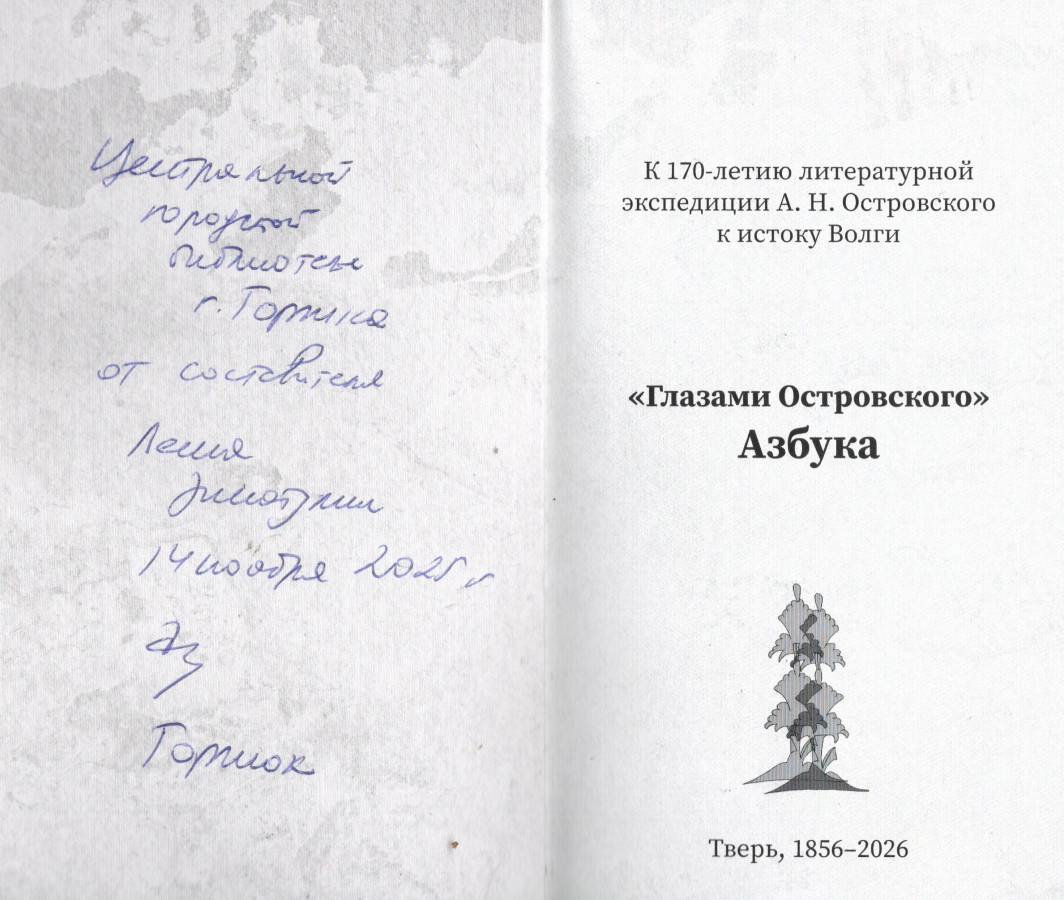 Центральной
городской
библиотеке
г. Торжка
от составителя
14 ноября 2025 г
Торжок
К 170-летию литературной
экспедиции А. Н. Островского
к истоку Волги
«Глазами Островского»
Азбука
Тверь, 1856–2026